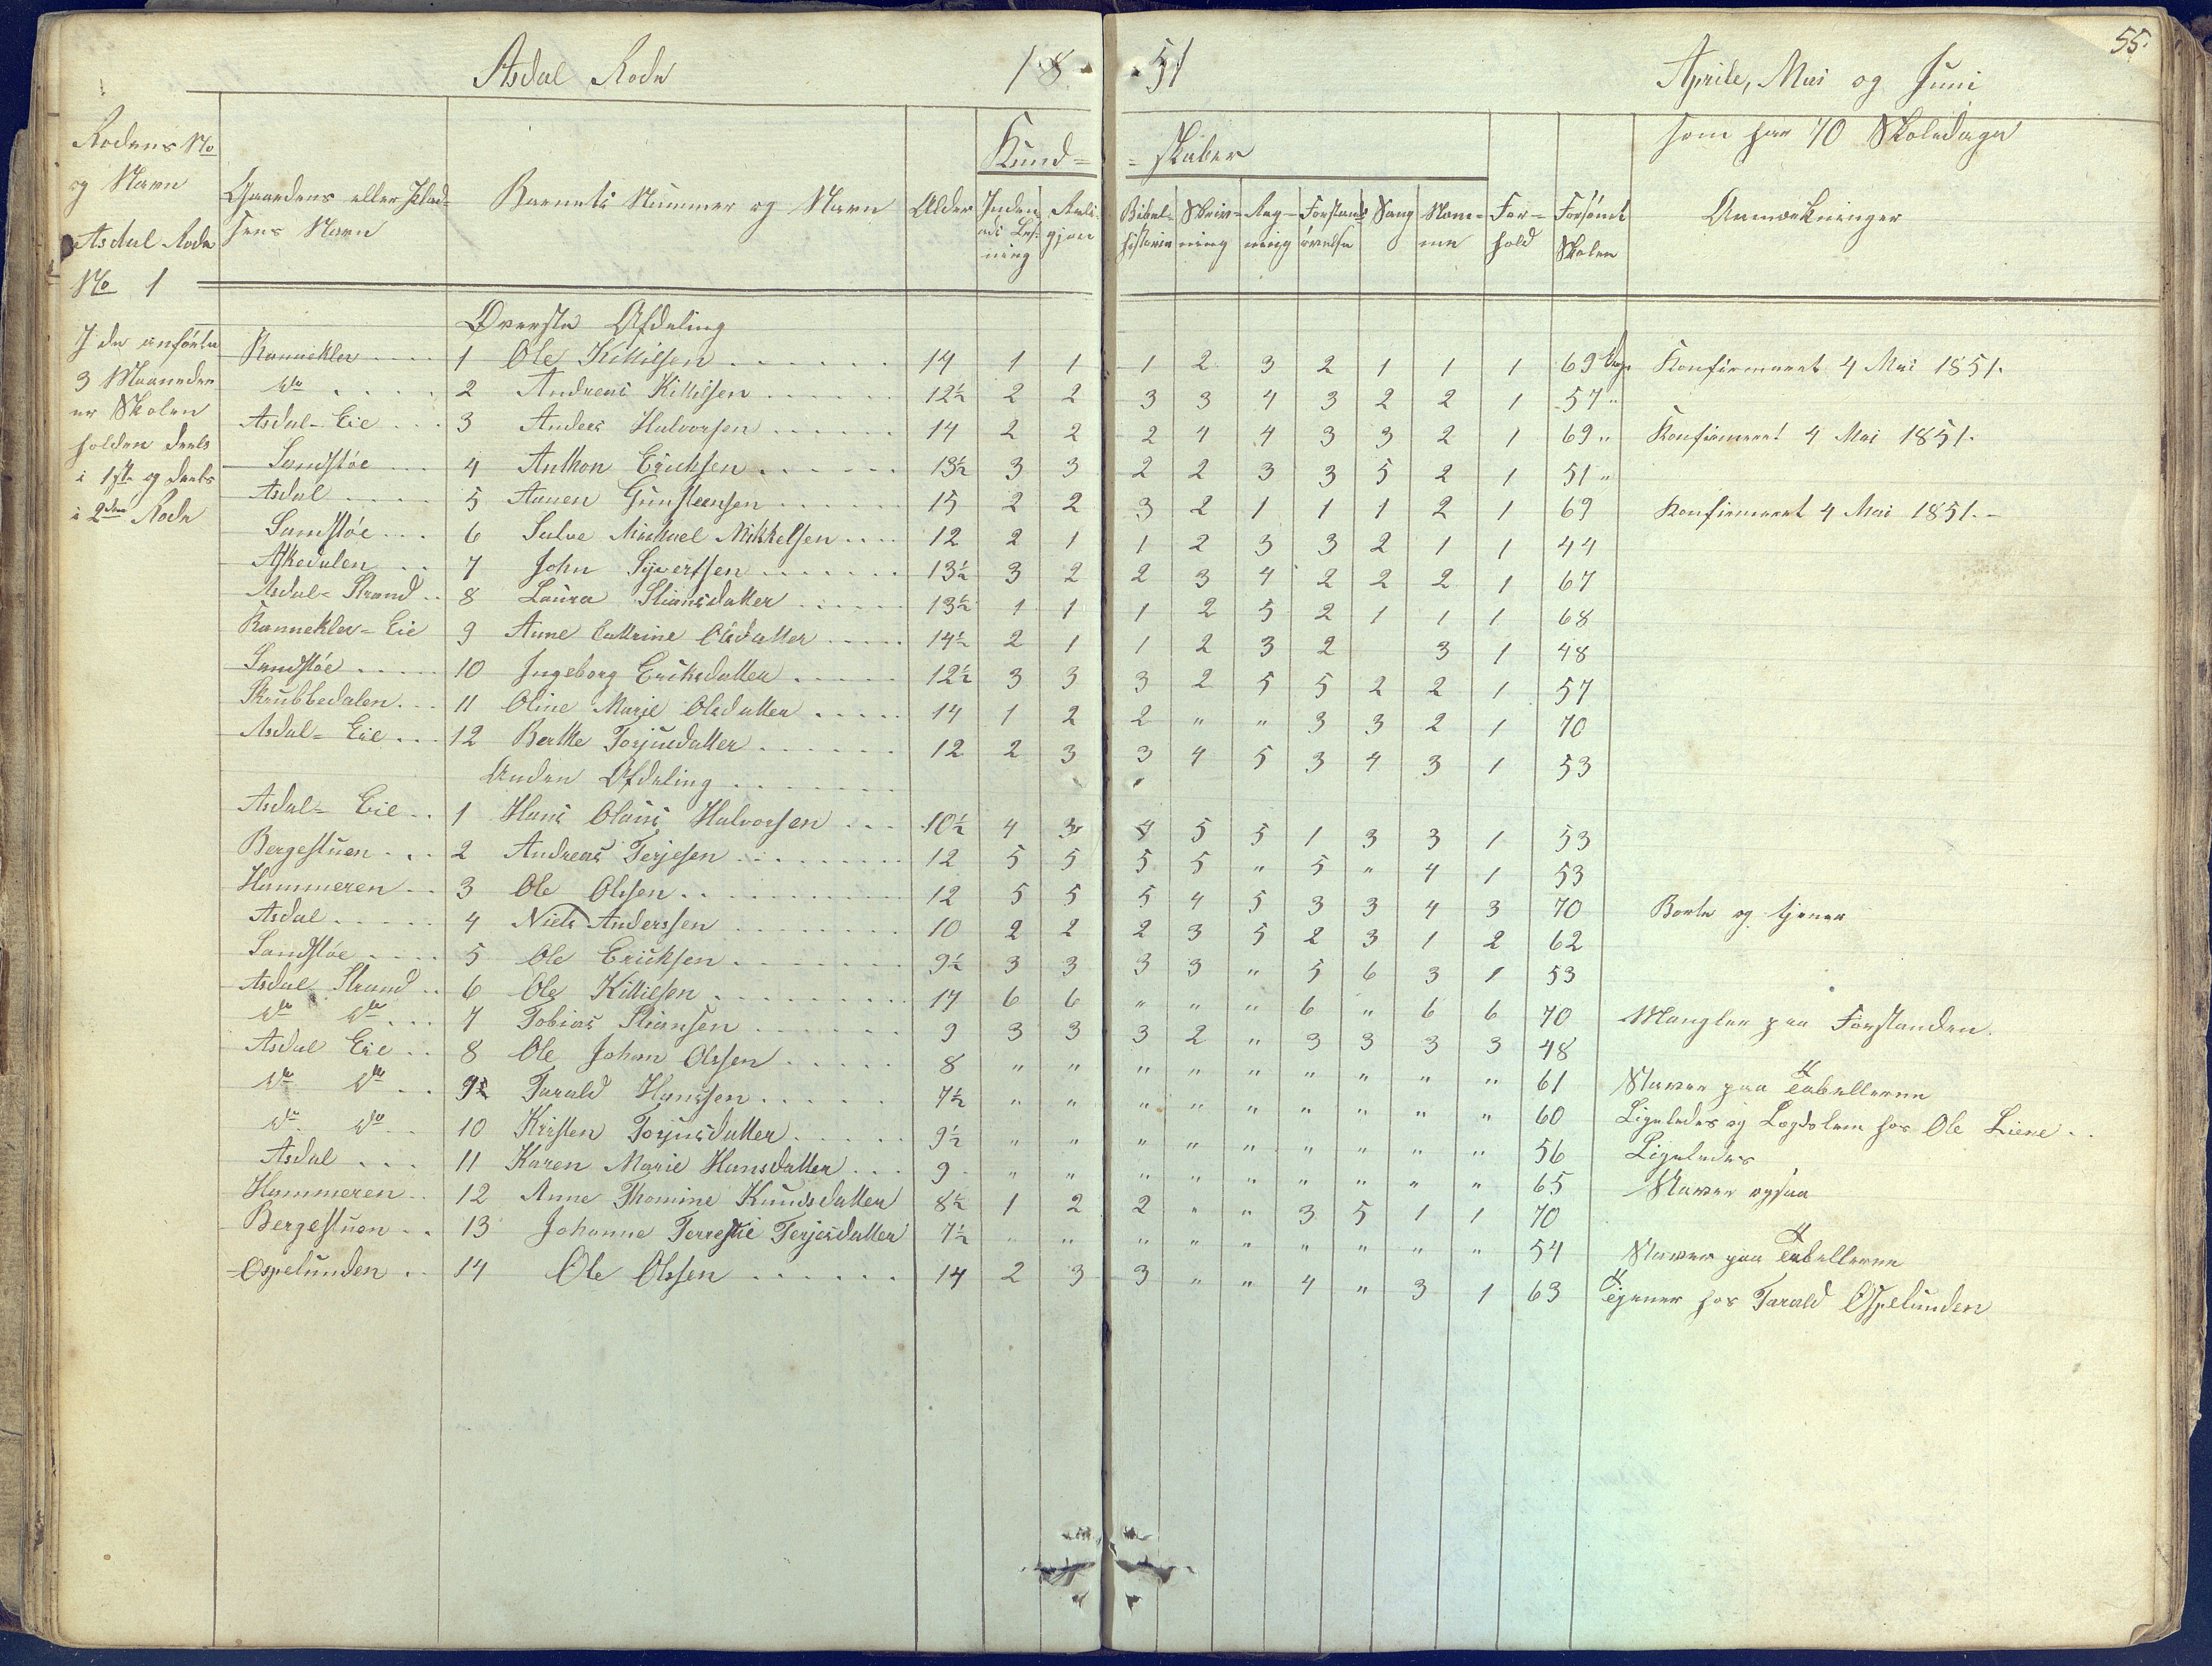 55.
Asdal Rode 1851 Aprile, Mai og Juni
som har 70 Skoledage
Rodens No
og Navn
Asdal Rode
No 1
Gaardens eller Plad-
sens Navn
Barnets Nummer og Navn
Alder
Kund= =skaber
Inden-
ads Læs-
ning
Reli-
gjon
Bibel-
historie
Skriv-
ning
Reg-
ning
Forstands
øvelse
Sang
Nem-
me
For-
hold
Forsømt
Skolen
Anmærkninger
I de anførte
3 Maaneder
er Skolen
holden deels
i 1ste og deels
i 2den Rode
Øverste Afdeling
Rannekler 1 Ole Killilsen 14 1 1 1 2 3 2 1 1 1 69 Dage Konfirmeret 4 Mai 1851.
do 2 Andreas Killilsen 12½ 2 2 3 3 4 3 2 2 1 57 " 
Asdal-Eie 3 Anders Halvorsen 14 2 2 2 4 4 3 3 2 1 69 " Konfirmeret 4 Mai 1851.
Sandstøe 4 Anthon Ericksen 13½ 3 3 2 2 3 3 5 2 1 51 "
Asdal 5 Aanen Gunsteensen 15 2 2 3 2 1 1 1 2 1 69 Konfirmeret 4 Mai 1851.-
Sandstøe 6 Salve Michael Mikkelsen 12 2 1 1 2 3 3 2 1 1 44
Askedalen 7 John Syvertsen 13½ 3 2 2 3 4 2 2 2 1 67
Asdal-Strand 8 Laura Stiansdatter 13½ 1 1 1 2 5 2 1 1 1 68
Rannekler-Eie 9 Anne Cattrine Olsdatter 14½ 2 1 1 2 3 2 3 1 48
Sandstøe 10 Ingeborg Eriksdatter 12½ 3 3 3 2 5 5 2 2 1 57
Skrubbedalen 11 Oline Marie Olsdatter 14 1 2 2 " " 3 3 2 1 70
Asdal-Eie 12 Berthe Torjusdatter 12 2 3 3 4 5 3 4 3 1 53
Anden Afdeling
Asdal-Eie 1 Hans Olaus Halvorsen 10½ 4 3 4 5 5 1 3 3 1 53
Bergestuen 2 Andreas Terjesen 12 5 5 5 5 " 5 " 4 1 53
Hammeren 3 Ole Olssen 12 5 5 5 4 5 3 3 4 3 70 Borte og tjener
Asdal 4 Niels Anderssen 10 2 2 2 3 5 2 3 1 2 62
Sandstøe 5 Ole Ericksen 9½ 3 3 3 3 " 5 6 3 1 53
Asdal Strand 6 Ole Killilsen 17 6 6 " " " 6 " 6 6 70 Mangler paa Forstanden.
do do 7 Tobias Stiansen 9 3 3 3 2 " 3 3 3 3 48
Asdal Eie 8 Ole Johan Olssen 8 " " " " " " " " " 61 Staver paa Tabellerne
do do 9 Tarald Hanssen 7½ " " " " " " " " " 60 Ligeledes og Lægdslem hos Ole Liene
do do 10 Kristen Torjusdatter 9½ " " " " " " " " " 56 Ligeledes
Asdal 11 Karen Marie Hansdatter 9 " " " " " " " " " 65 Staver ogsaa
Hammeren 12 Anne Thomine Knudsdatter 8½ 1 2 2 " " 3 5 1 1 70
Bergestuen 13 Johanne Terrestie Terjesdatter 7½ " " " " " " " " " 54 Staver paa Tabellerne
Ospelunden 14 Ole Olssen 14 2 3 3 " " 4 " 3 1 63 Tjener hos Tarald Ospelunden